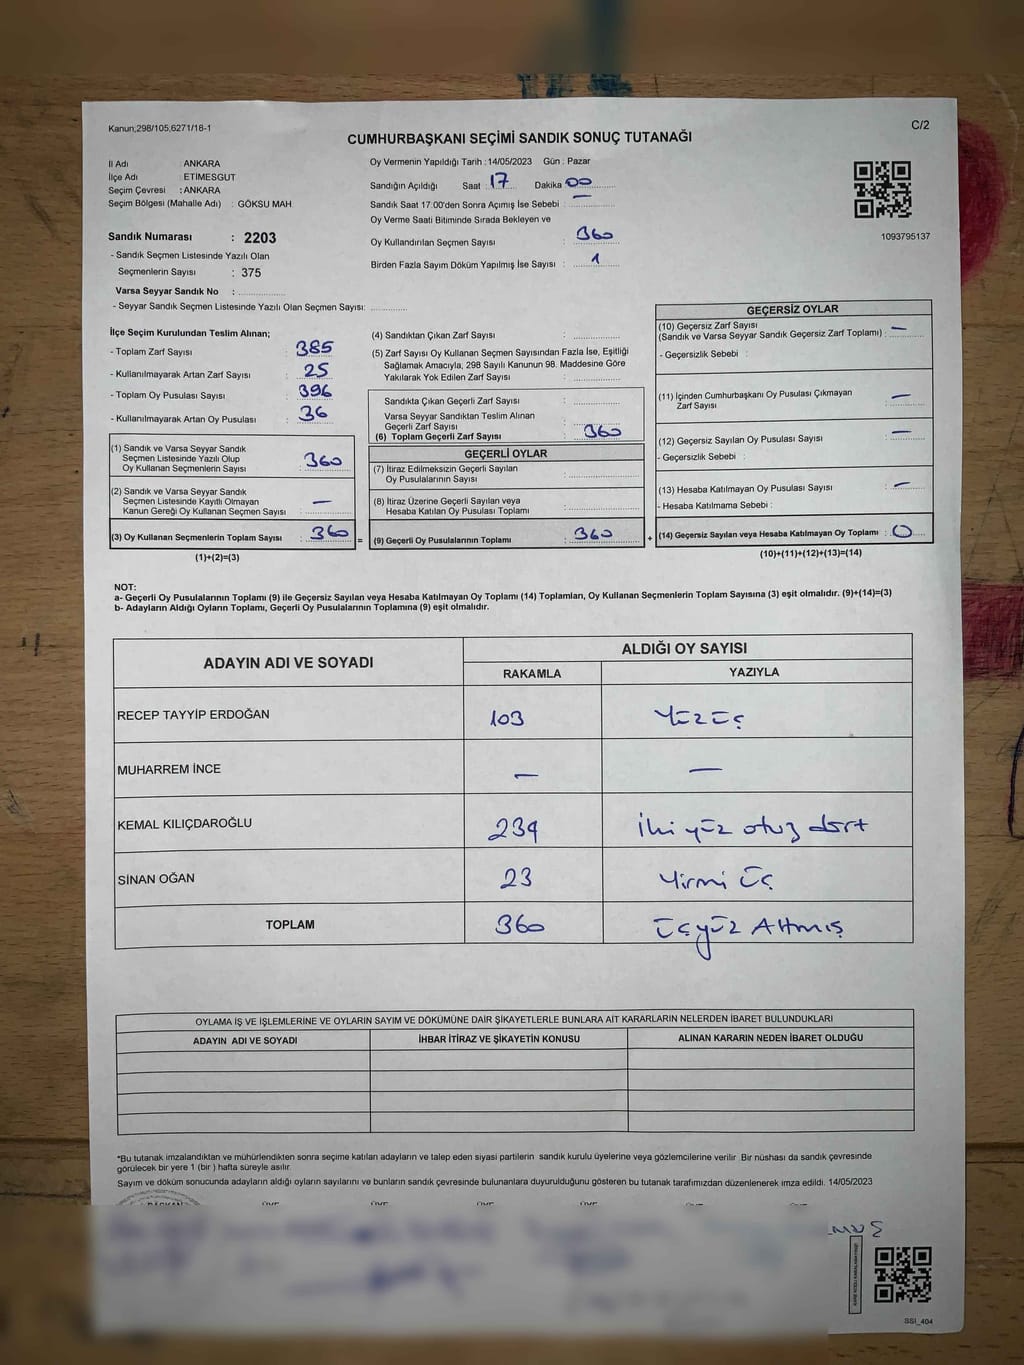 Kanun;298/105;6271/18-1
C/2
CUMHURBAŞKANI SEÇİMİ SANDIK SONUÇ TUTANAĞI
İl Adı : ANKARA
İlçe Adı : ETİMESGUT
Seçim Çevresi : ANKARA
Seçim Bölgesi (Mahalle Adı) : GÖKSU MAH
Sandık Numarası : 2203
- Sandık Seçmen Listesinde Yazılı Olan
Seçmenlerin Sayısı : 375
Varsa Seyyar Sandık No :
- Seyyar Sandık Seçmen Listesinde Yazılı Olan Seçmen Sayısı:
Oy Vermenin Yapıldığı Tarih : 14/05/2023 Gün : Pazar
Sandığın Açıldığı Saat : 17 Dakika : 00
Sandık Saat 17:00'den Sonra Açımış İse Sebebi : —
Oy Verme Saati Bitiminde Sırada Bekleyen ve
Oy Kullandırılan Seçmen Sayısı : 360
Birden Fazla Sayım Döküm Yapılmış İse Sayısı : 1
1093795137
İlçe Seçim Kurulundan Teslim Alınan;
- Toplam Zarf Sayısı : 385
- Kullanılmayarak Artan Zarf Sayısı : 25
- Toplam Oy Pusulası Sayısı : 396
- Kullanılmayarak Artan Oy Pusulası : 36
(1) Sandık ve Varsa Seyyar Sandık
Seçmen Listesinde Yazılı Olup
Oy Kullanan Seçmenlerin Sayısı : 360
(2) Sandık ve Varsa Seyyar Sandık
Seçmen Listesinde Kayıtlı Olmayan
Kanun Gereği Oy Kullanan Seçmen Sayısı : —
(3) Oy Kullanan Seçmenlerin Toplam Sayısı : 360 =
(1)+(2)=(3)
(4) Sandıktan Çıkan Zarf Sayısı :
(5) Zarf Sayısı Oy Kullanan Seçmen Sayısından Fazla İse, Eşitliği
Sağlamak Amacıyla, 298 Sayılı Kanunun 98. Maddesine Göre
Yakılarak Yok Edilen Zarf Sayısı :
Sandıkta Çıkan Geçerli Zarf Sayısı :
Varsa Seyyar Sandıktan Teslim Alınan
Geçerli Zarf Sayısı :
(6) Toplam Geçerli Zarf Sayısı : 360
GEÇERLİ OYLAR
(7) İtiraz Edilmeksizin Geçerli Sayılan
Oy Pusulalarının Sayısı :
(8) İtiraz Üzerine Geçerli Sayılan veya
Hesaba Katılan Oy Pusulası Toplamı :
(9) Geçerli Oy Pusulalarının Toplamı : 360 +
GEÇERSİZ OYLAR
(10) Geçersiz Zarf Sayısı
(Sandık ve Varsa Seyyar Sandık Geçersiz Zarf Toplamı) : —
- Geçersizlik Sebebi :
(11) İçinden Cumhurbaşkanı Oy Pusulası Çıkmayan
Zarf Sayısı : —
(12) Geçersiz Sayılan Oy Pusulası Sayısı : —
- Geçersizlik Sebebi :
(13) Hesaba Katılmayan Oy Pusulası Sayısı : —
- Hesaba Katılmama Sebebi :
(14) Geçersiz Sayılan veya Hesaba Katılmayan Oy Toplamı : 0
(10)+(11)+(12)+(13)=(14)
NOT:
a- Geçerli Oy Pusulalarının Toplamı (9) ile Geçersiz Sayılan veya Hesaba Katılmayan Oy Toplamı (14) Toplamları, Oy Kullanan Seçmenlerin Toplam Sayısına (3) eşit olmalıdır. (9)+(14)=(3)
b- Adayların Aldığı Oyların Toplamı, Geçerli Oy Pusulalarının Toplamına (9) eşit olmalıdır.
ADAYIN ADI VE SOYADI
ALDIĞI OY SAYISI
RAKAMLA YAZIYLA
RECEP TAYYİP ERDOĞAN 103 Yüz üç
MUHARREM İNCE — —
KEMAL KILIÇDAROĞLU 234 İki yüz otuz dört
SİNAN OĞAN 23 Yirmi üç
TOPLAM 360 üçyüz Altmış
OYLAMA İŞ VE İŞLEMLERİNE VE OYLARIN SAYIM VE DÖKÜMÜNE DAİR ŞİKAYETLERLE BUNLARA AİT KARARLARIN NELERDEN İBARET BULUNDUKLARI
ADAYIN ADI VE SOYADI İHBAR İTİRAZ VE ŞİKAYETİN KONUSU ALINAN KARARIN NEDEN İBARET OLDUĞU
*Bu tutanak imzalandıktan ve mühürlendikten sonra seçime katılan adayların ve talep eden siyasi partilerin sandık kurulu üyelerine veya gözlemcilerine verilir .Bir nüshası da sandık çevresinde
görülecek bir yere 1 (bir ) hafta süreyle asılır.
Sayım ve döküm sonucunda adayların aldığı oyların sayılarını ve bunların sandık çevresinde bulunanlara duyurulduğunu gösteren bu tutanak tarafımızdan düzenlenerek imza edildi. 14/05/2023
SSİ_404